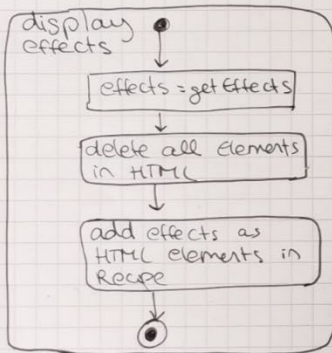 display
effects
effects = getEffects
delete all Elements
in HTML
add effects as
HTML elements in
Recipe